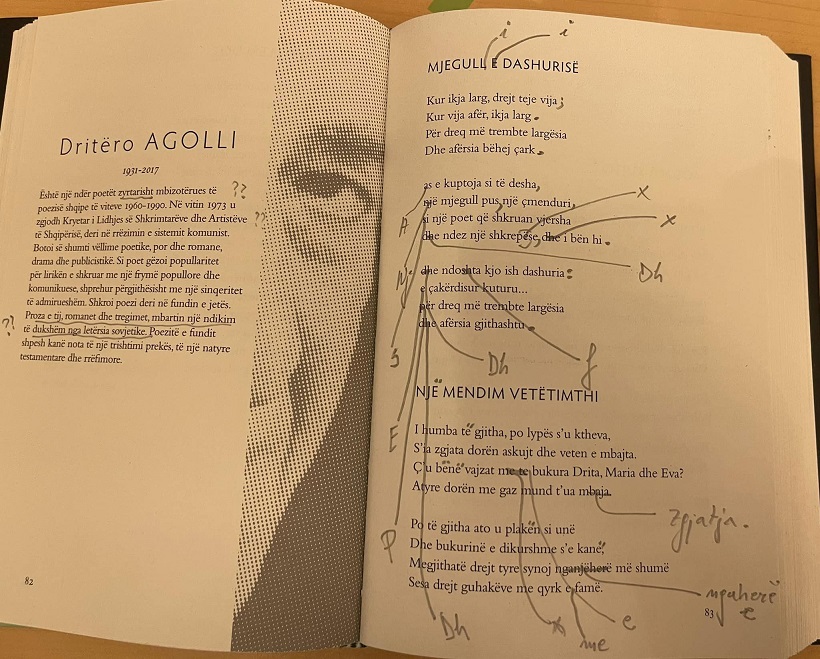 Dritëro AGOLLI
1931-2017
Është një ndër poetët zyrtarisht mbizotërues të
poezisë shqipe të viteve 1960-1990. Në vitin 1973 u
zgjodh Kryetar i Lidhjes së Shkrimtarëve dhe Artistëve
të Shqipërisë, deri në rrëzimin e sistemit komunist.
Botoi së shumti vëllime poetike, por dhe romane,
drama dhe publicistikë. Si poet gëzoi popullaritet
për lirikën e shkruar me një frymë popullore dhe
komunikuese, shprehur përgjithësisht me një sinqeritet
të admirueshëm. Shkroi poezi deri në fundin e jetës.
Proza e tij, romanet dhe tregimet, mbartin një ndikim
të dukshëm nga letërsia sovjetike. Poezitë e fundit
shpesh kanë nota të një trishtimi prekës, të një natyre
testamentare dhe rrëfimore.
??
??
?!
82
i i
MJEGULL E DASHURISË
Kur ikja larg, drejt teje vija;
Kur vija afër, ikja larg.
Për dreq më trembte largësia
Dhe afërsia bëhej çark.
as e kuptoja si të desha,
një mjegull pus,një çmenduri,
si një poet që shkruan vjersha
dhe ndez një shkrepëse, dhe i bën hi.
dhe ndoshta kjo ish dashuria:
e çakërdisur kuturu...
për dreq më trembte largësia
dhe afërsia gjithashtu.
x
x
A
Dh
Nj
S
Dh
f
E
P
NJË MENDIM VETËTIMTHI
I humba të gjitha, po lypës s'u ktheva,
S'ia zgjata dorën askujt dhe veten e mbajta.
Ç'u bënë vajzat me te bukura Drita, Maria dhe Eva?
Atyre dorën me gaz mund t'ua mbaja.
zgjatja.
Po të gjitha ato u plakën si unë
Dhe bukurinë e dikurshme s'e kanë,
Megjithatë drejt tyre synoj nganjëherë më shumë
Sesa drejt guhakëve me qyrk e famë.
ngaherë
e
Dh
x
me
e
83